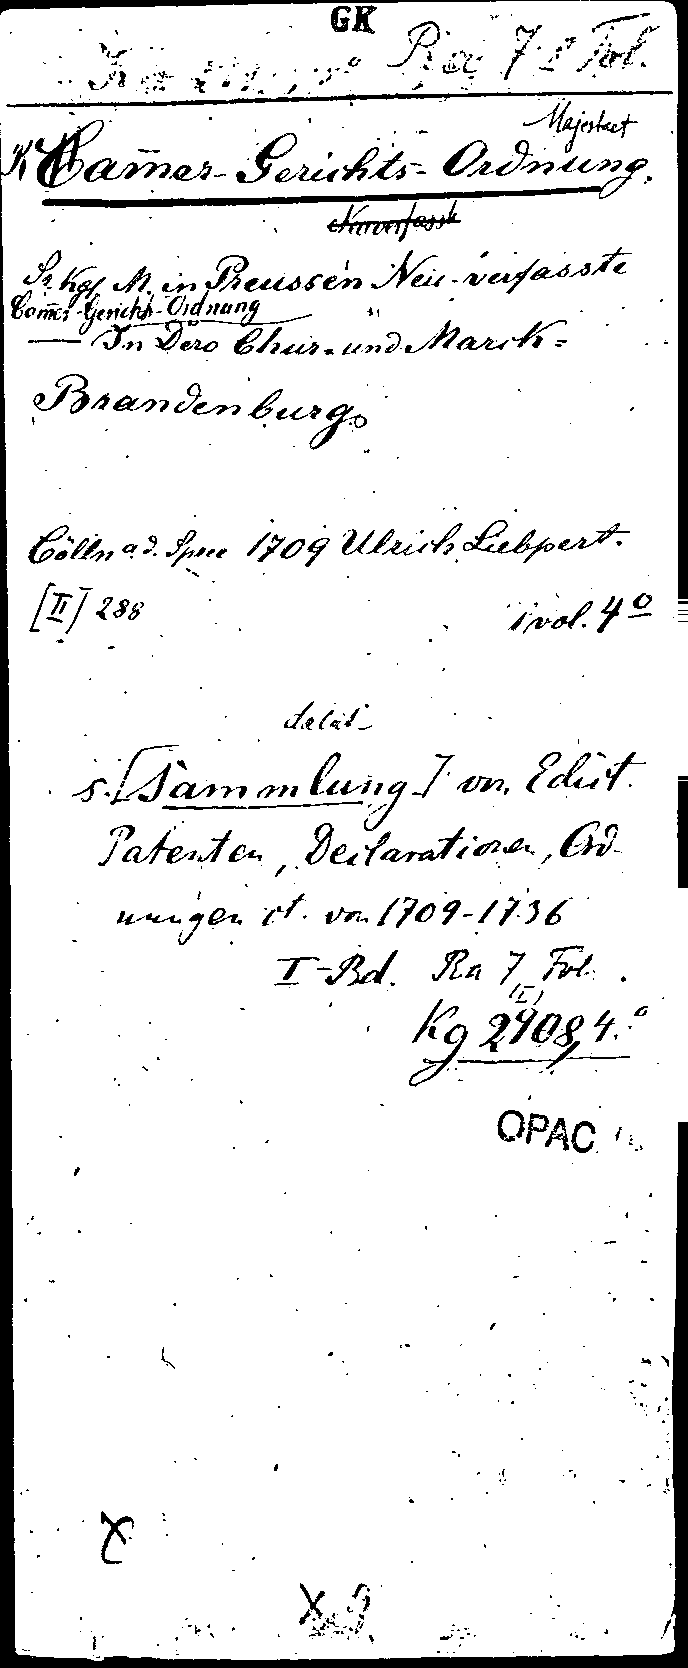 GK
Ra 7 2 Fol.
Majestaet
Cam̄er-Gerichts-Ordnung.
Sr. Kgl. M. in Preussen Neu-verfasste
Cam̄er-Gerichts-Ordnung
— In Dero Chur- und Marck-
Brandenburg
Cölln a. d. Spree 1709 Ulrich Liebpert.
[II] 288 1 vol. 4º
s. [Sammlung] von Edict.
Patenten, Declarationen, Ord-
nungen et. von 1709-1736
I-Bd. Ra 7 Fol.
(I)
Kg 2908, 4.º
OPAC